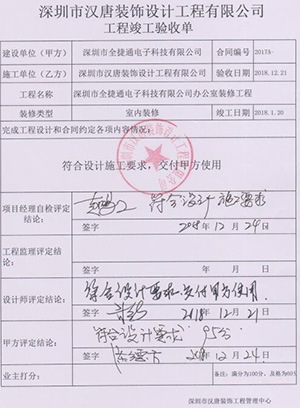 深圳市汉唐装饰设计工程有限公司
工程竣工验收单
建设单位（甲方） 深圳市全捷通电子科技有限公司 合同编号 2017A-
施工单位（乙方） 深圳市汉唐装饰设计工程有限公司 验收日期 2018.12.21
工程名称 深圳市全捷通电子科技有限公司办公室装修工程
装修类型 室内装修 竣工日期 2018.1.20
完成工程设计和合同约定各项内容情况：
符合设计施工要求，交付甲方使用
项目经理自检评定结论： 符合设计施工要求
签字 2018年12月24日
工程监理评定结论：
签字 年 月 日
设计师评定结论： 符合设计要求交付甲方使用.
签字 2018年12月21日
甲方评定结论： 符合设计要求 95分
签字 2018年12月24日
业主打分： 备注：满分为100分，及格为60
深圳市汉唐装饰工程管理中心